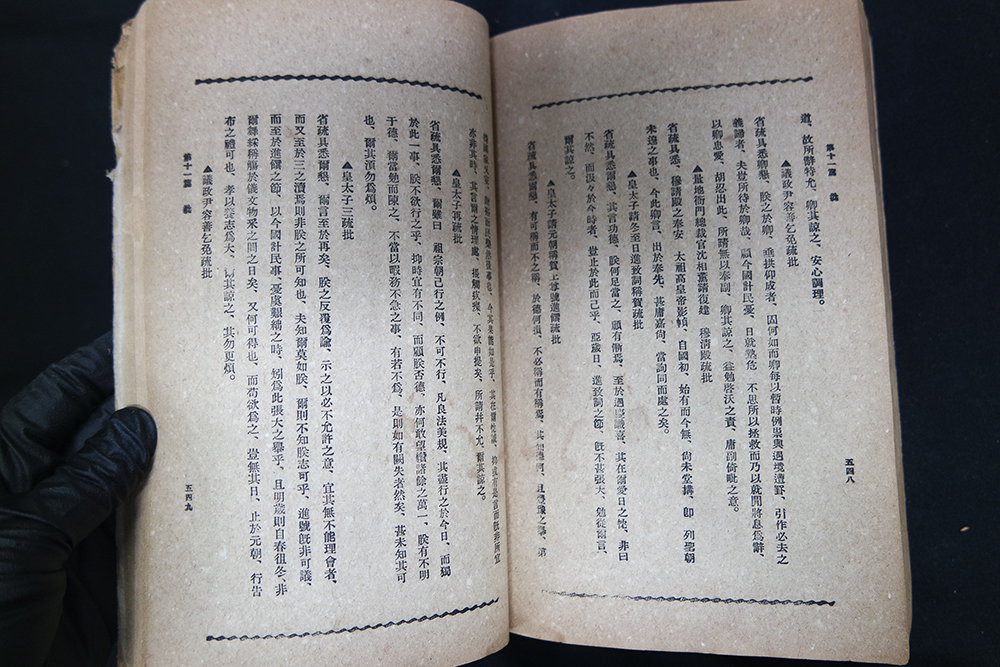 第十一篇 批
五四八
道、故所辭特允、卿其諒之、安心調理。
▲議政尹容善乞免疏批
省疏具悉卿懇、朕之於卿、垂拱仰成者、固何如而卿每以暫時例祟與過境遭罹、引作必去之
義諦者、夫豈所待於卿哉、顧今國計民憂、日就孰危、不思所以拯救而乃以就閒將息爲辭、
以卿忠愛、胡忍出此、所請無以奉副、卿其諒之、益勉啓沃之責、庸副倚毗之意。
▲量地衙門總裁官沈相薰請復建 穆淸殿疏批
省疏具悉、穆淸殿之奉安 太祖高皇帝影幀、自國初、始有而今無、尙未堂搆、卽 列聖朝
未遑之事也、今此卿言、出於奉先、甚庸嘉尙、當詢同而處之矣。
▲皇太子請冬至日進致詞稱賀疏批
省疏具悉爾懇、其言功德、朕何足當之、顧有慚焉、至於過 識喜、其在爾愛日之忱、非曰
不然、而汲々於今時者、豈止於此而已乎、亞歲日、進致詞之節、旣不甚張大、勉從爾言、
爾其諒之。
▲皇太子請元朝稱賀上尊號進饌疏批
省疏具悉爾懇、有可稱而不之稱、於德何損、不必稱而有稱焉、其如德何、且 之擧、第
亦非其時、其言爾之情理處、提觸疚殞、不欲申提矣、所請幷不允、爾其諒之。
▲皇太子再疏批
省疏具悉爾懇、爾雖曰 祖宗朝已行之例、不可不行、凡良法美規、其盡行之於今日、而獨
於此一事、朕不欲行之乎、抑時宜有不同、而顧朕否德、亦何敢望 諸餘之萬一、朕有不明
于德、爾當勉而陳之、不當以暇務不急之事、有若不爲、是則如有闕失者然矣、甚未知其可
也、爾其須勿爲煩。
▲皇太子三疏批
省疏具悉爾懇、爾言至於再矣、朕之反覆爲諭、示之以必不允許之意、宜其無不能理會者、
而又至於三之瀆焉則非朕之所可知也、夫知爾莫如朕、爾則不知朕志可乎、進號旣非可議、
而至於進饌之節、以今國計民事、憂虞艱綢之時、矧爲此張大之擧乎、且明歲則自春徂冬、非
爾 綵稱觴於儀文物采之間之日矣、又何可得也、而苟欲爲之、豈無其日、止於元朝、行告
布之禮可也、孝以養志爲大、爾其諒之、其勿更煩。
▲議政尹容善乞免疏批
第十一篇 批
五四九